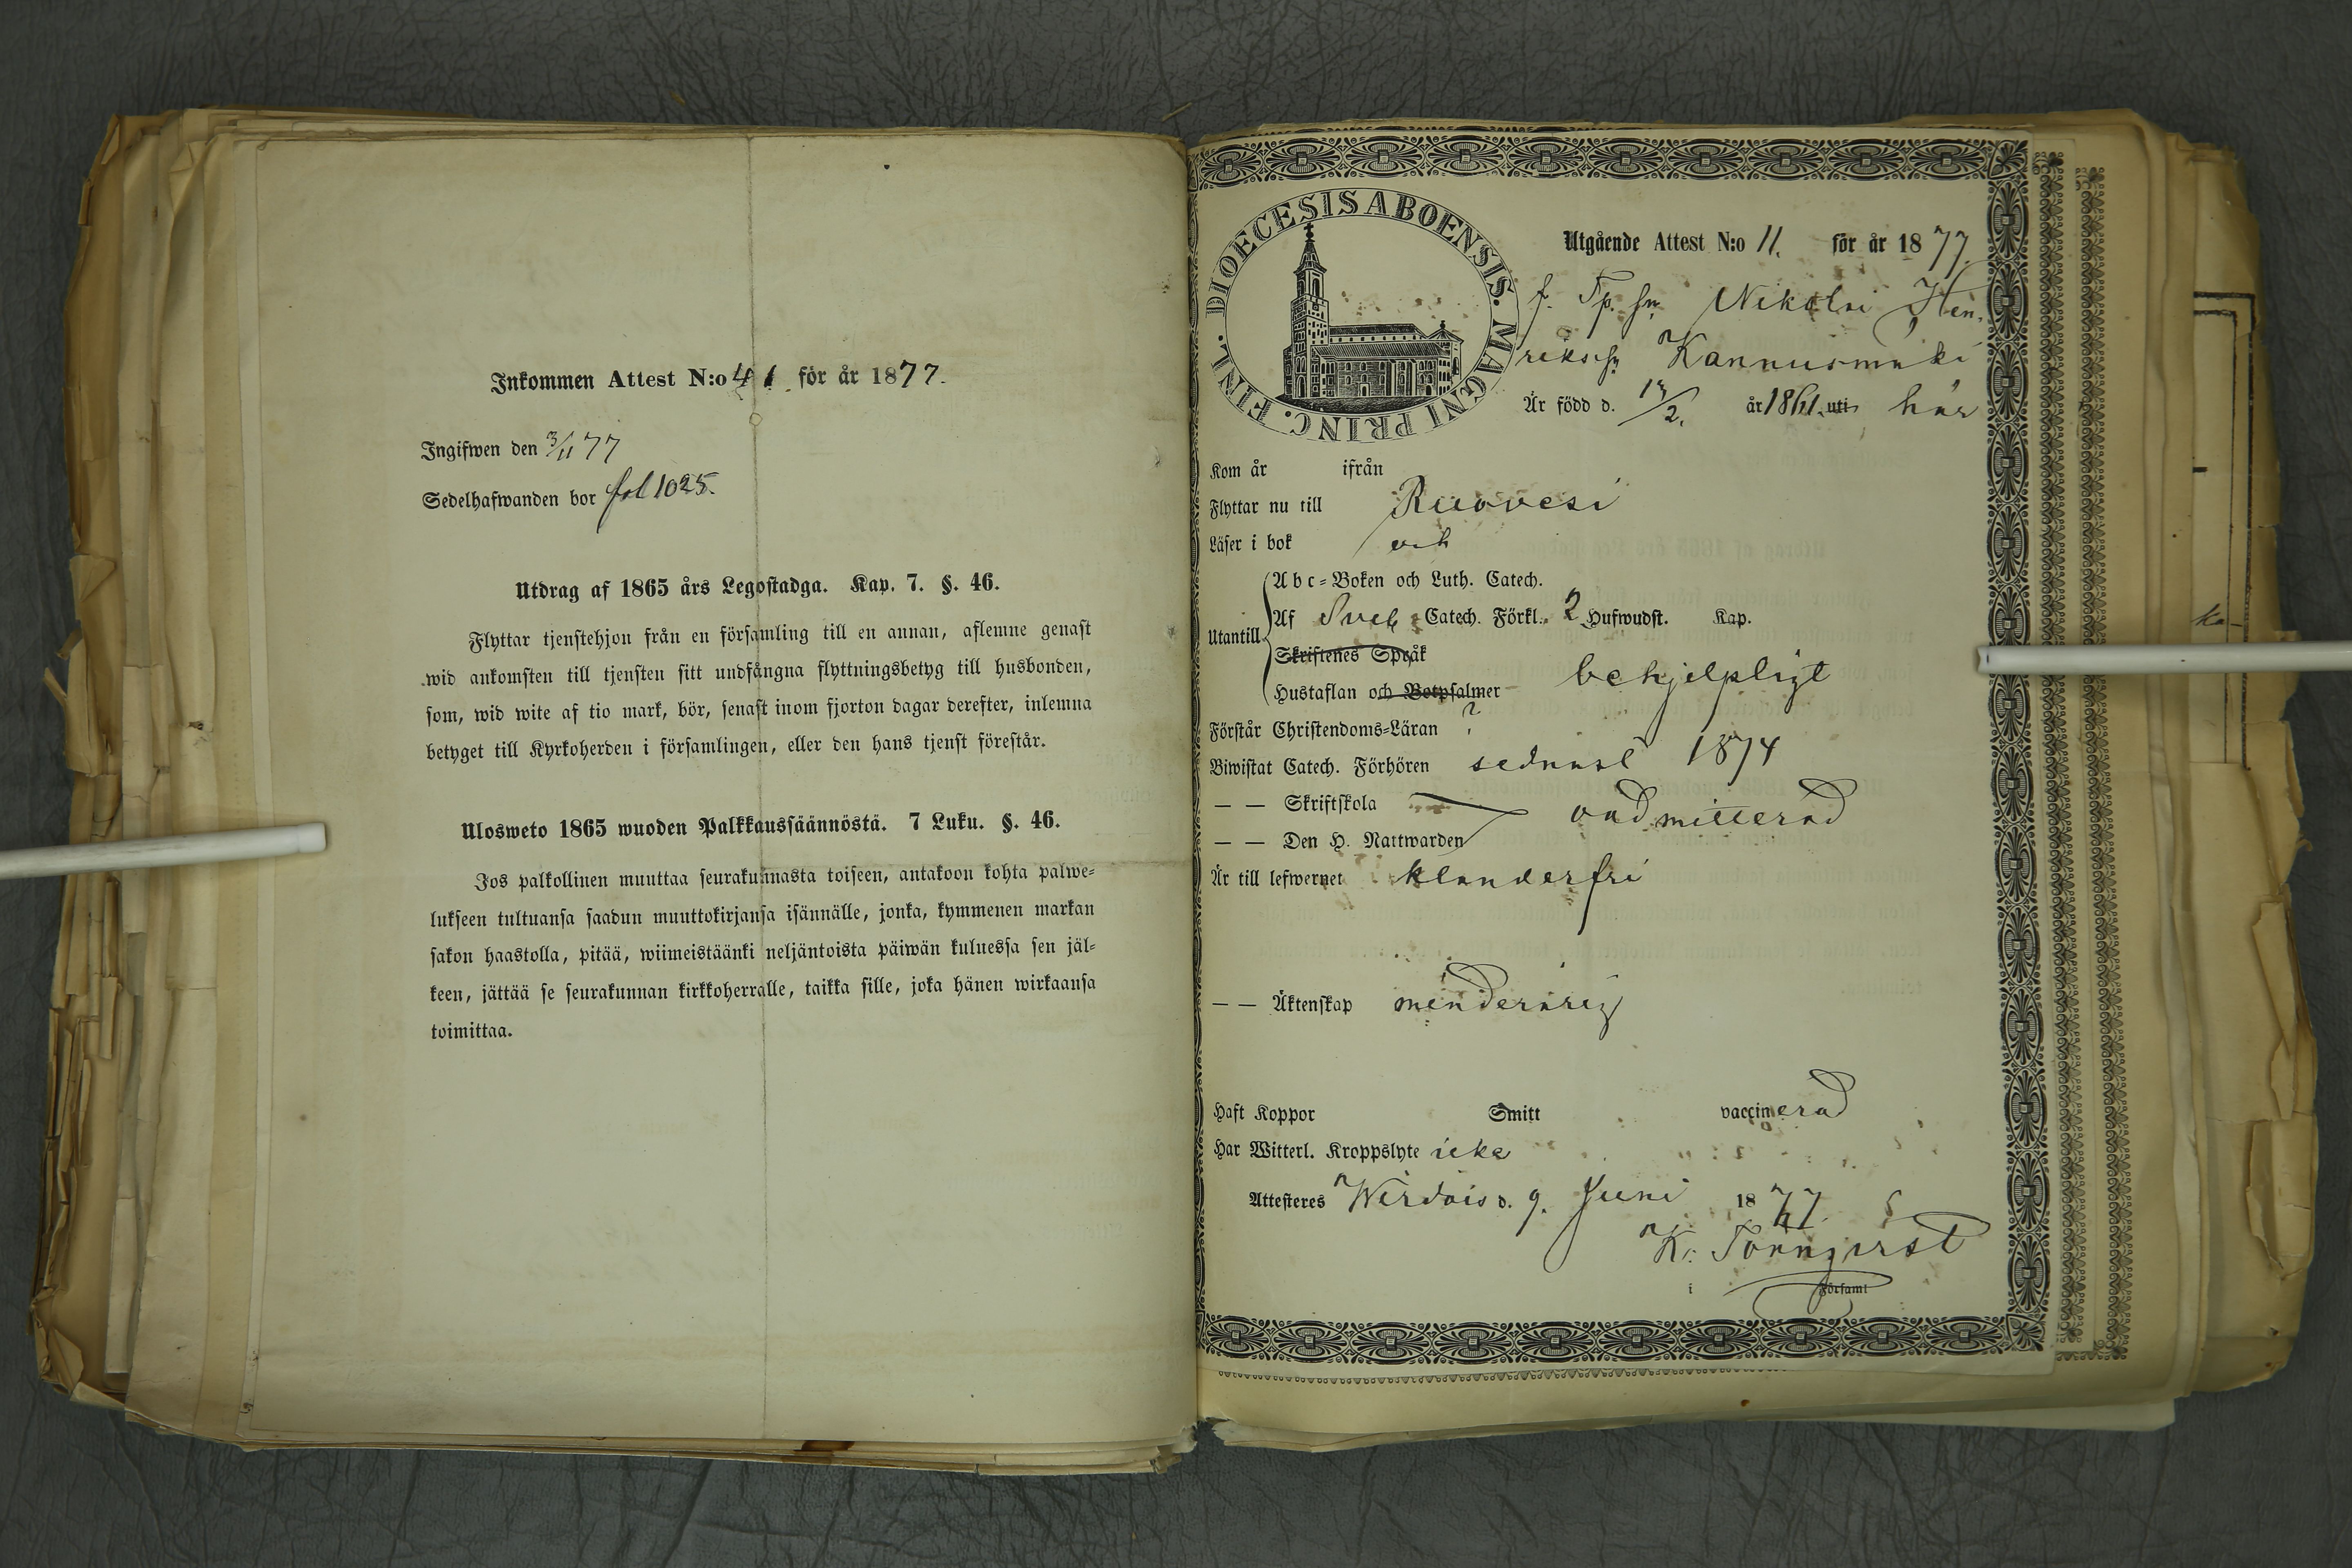 Inkommen Attest N:o 41. för år 1877.
Ingifwen den 3/11 77
Sedelhafwanden bor fol 1025.
Utdrag af 1865 års Legostadga. Kap. 7. §. 46.
Flyttar tjenstehjon från en församling till en annan, aflemne genast
wid ankomsten till tjensten sitt undfångna flyttningsbetyg till husbonden,
som, wid wite af tio mark, bör, senast inom fjorton dagar derefter, inlemna
betyget till Kyrkoherden i församlingen, eller den hans tjenst förestår.
Ulosweto 1865 wuoden Palkkaussäännöstä. 7 Luku. §. 46.
Jos palkollinen muuttaa seurakunnasta toiseen, antakoon kohta palwe-
lukseen tultuansa saadun muuttokirjansa isännälle, jonka, kymmenen markan
sakon haastolla, pitää, wiimeistäänki neljäntoista päiwän kuluessa sen jäl-
keen, jättää se seurakunnan kirkkoherralle, taikka sille, joka hänen wirkaansa
toimittaa.
DIOECESIS ABOENSIS. MAGNI PRINC. FINL.
Utgående Attest N:o 11. för år 1877.
f. Tp. sn. Nikolai Hen-
rikssn Kannusmäki
Är född d. /2. år 1861. uti här
Kom år ifrån
Flyttar nu till Ruovesi
Läser i bok och
Utantill
Abc-Boken och Luth. Catech.
Af Sveb Catech. Förkl. 2 Hufwudst. Kap.
Skriftenes Språk
Hustaflan och Botpsalmer behjelpligt
Förstår Christendoms-Läran ?
Biwistat Catech. Förhören sednast 1874
— — Skriftskola oadmitterad
— — Den H. Nattwarden
Är till lefwernet klanderfri
— — Äktenskap minderårig
Haft Koppor Smitt vaccinerad
Har Witterl. Kroppslyte icke
Attesteres Wirdois d. 9. Juni 1877.
K. Tönnqvist
i Församl
ka-